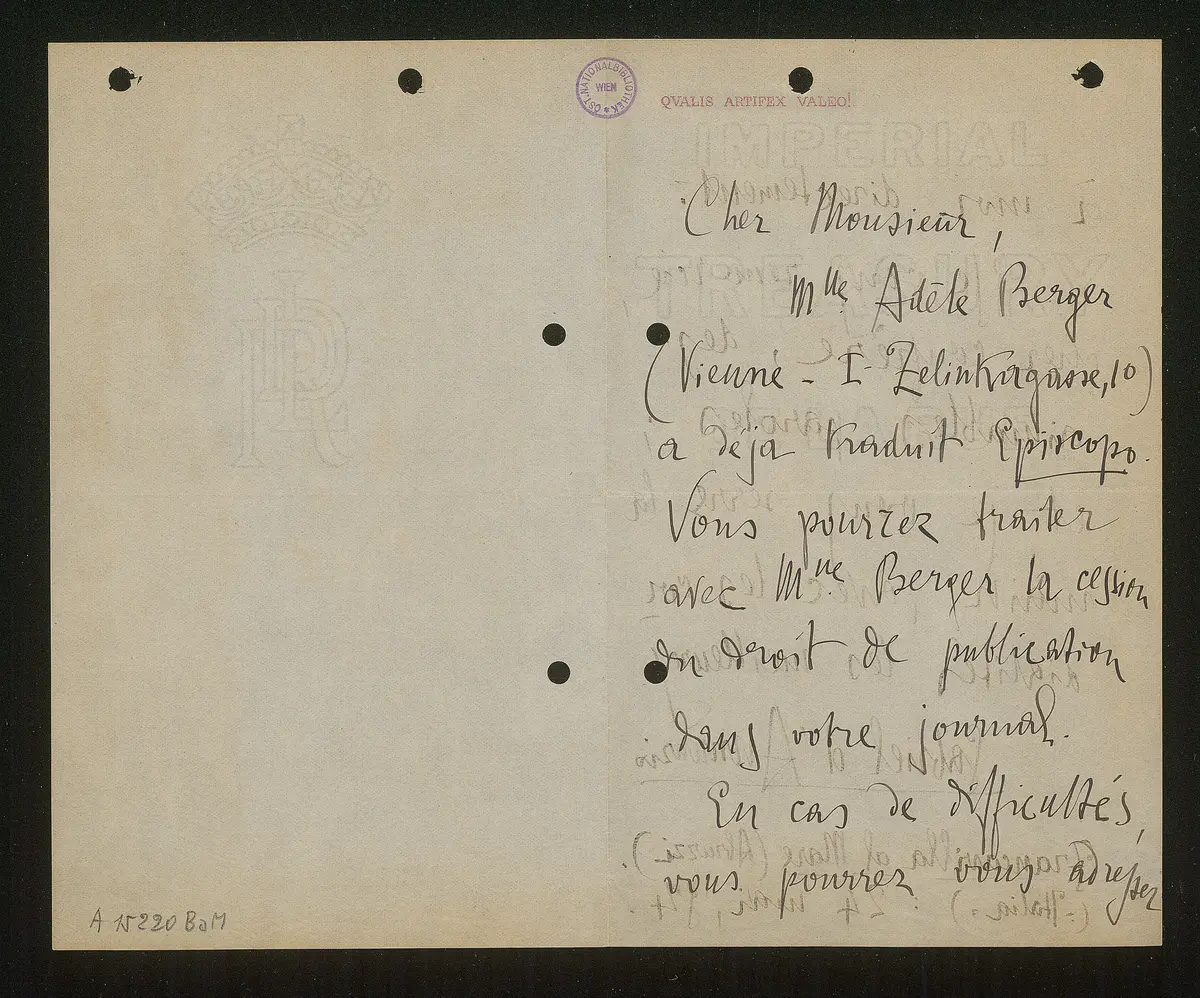 ÖST. NATIONALBIBLIOTHEK
WIEN
QVALIS ARTIFEX VALEO!
IMPERIAL
TREASURY
Cher Monsieur,
Mlle Adèle Berger
(Vienne - I- Zelinkagasse, 10)
a déja traduit Episcopo.
Vous pourrez traiter
avec Mlle Berger la cession
du droit de publication
dans votre journal.
En cas de difficultés,
vous pourrez vous adresser
A 15220 BaM